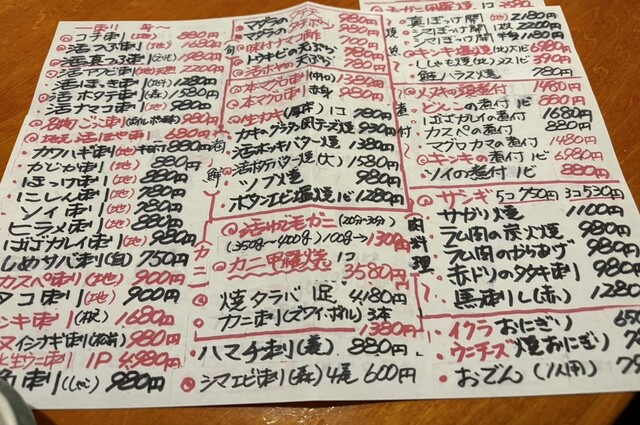 一刺り身〜
コチ刺り(地) 880円
活つぶ刺(地) 1680円
活真つぶ刺 1980円
活アワビ刺(地)天然 2200円
活ほっき刺 1280円
活ホタテ刺(森) 1580円
活ナマコ刺(地) 980円
名物ごっこ刺 980円
地元活ほや刺 680円
カワハギ刺(地) 880円
かじか刺(地) 880円
ほっけ刺(地) 880円
にしん刺(地) 780円
ソイ刺(地) 780円
ヒラメ刺(地) 880円
ゴゴガレイ刺(地) 880円
しめサバ刺(自) 750円
カスペ刺(地) 900円
タコ刺(地) 900円
1680円
イシナギ刺 980円
生ウニ刺 1P 4980円
980円
マグロの 980円
マグロのタチポン 980円
味付ナマコ酢 980円
トウキビの天ぷら 780円
活ホヤの天ぷら 780円
本マグロ刺(中トロ) 1380円
本マグロ刺 赤身 980円
生ガキ(厚岸) 1コ 780円
カキのグラタン風チーズ焼 930円
活ホッキバター焼 1380円
活ホタテバター焼(大) 1580円
ツブ焼 980円
ボタンエビ塩焼 1ピ 1280円
活ゆで毛ガニ(20分〜30分)
(350g〜400g) 100g→1300円
カニ甲羅焼 1コ
3580円
焼タラバ 1足 4180円
カニ刺(ズワイ、ボイル) 3本
1380円
ハマチ刺(養) 880円
シマエビ刺(森) 4尾 600円
真ほっけ開(地) 2180円
シマほっけ開 1枚 2200円
シマほっけ開 半身 1180円
キンキ塩焼(地)大1ピ 6980円
しゃも焼(地) 390円
鮭ハラス焼 780円
メヌキの煮付 1480円
どんこの煮付 1ピ 880円
ゴゴガレイの煮付 1680円
カスペの煮付 880円
マグロカマの煮付 1480円
キンキの煮付 1ピ 6980円
ソイの煮付 1ピ 880円
肉料理
ザンギ 5コ750円 3コ530円
サガリ焼 1100円
ラム肉の炭火焼 980円
ラム肉のからあげ 980円
赤ドリのタタキ刺 980円
馬刺し(赤) 1280
イクラおにぎり
ウニチーズ焼おにぎり
おでん(1人用)